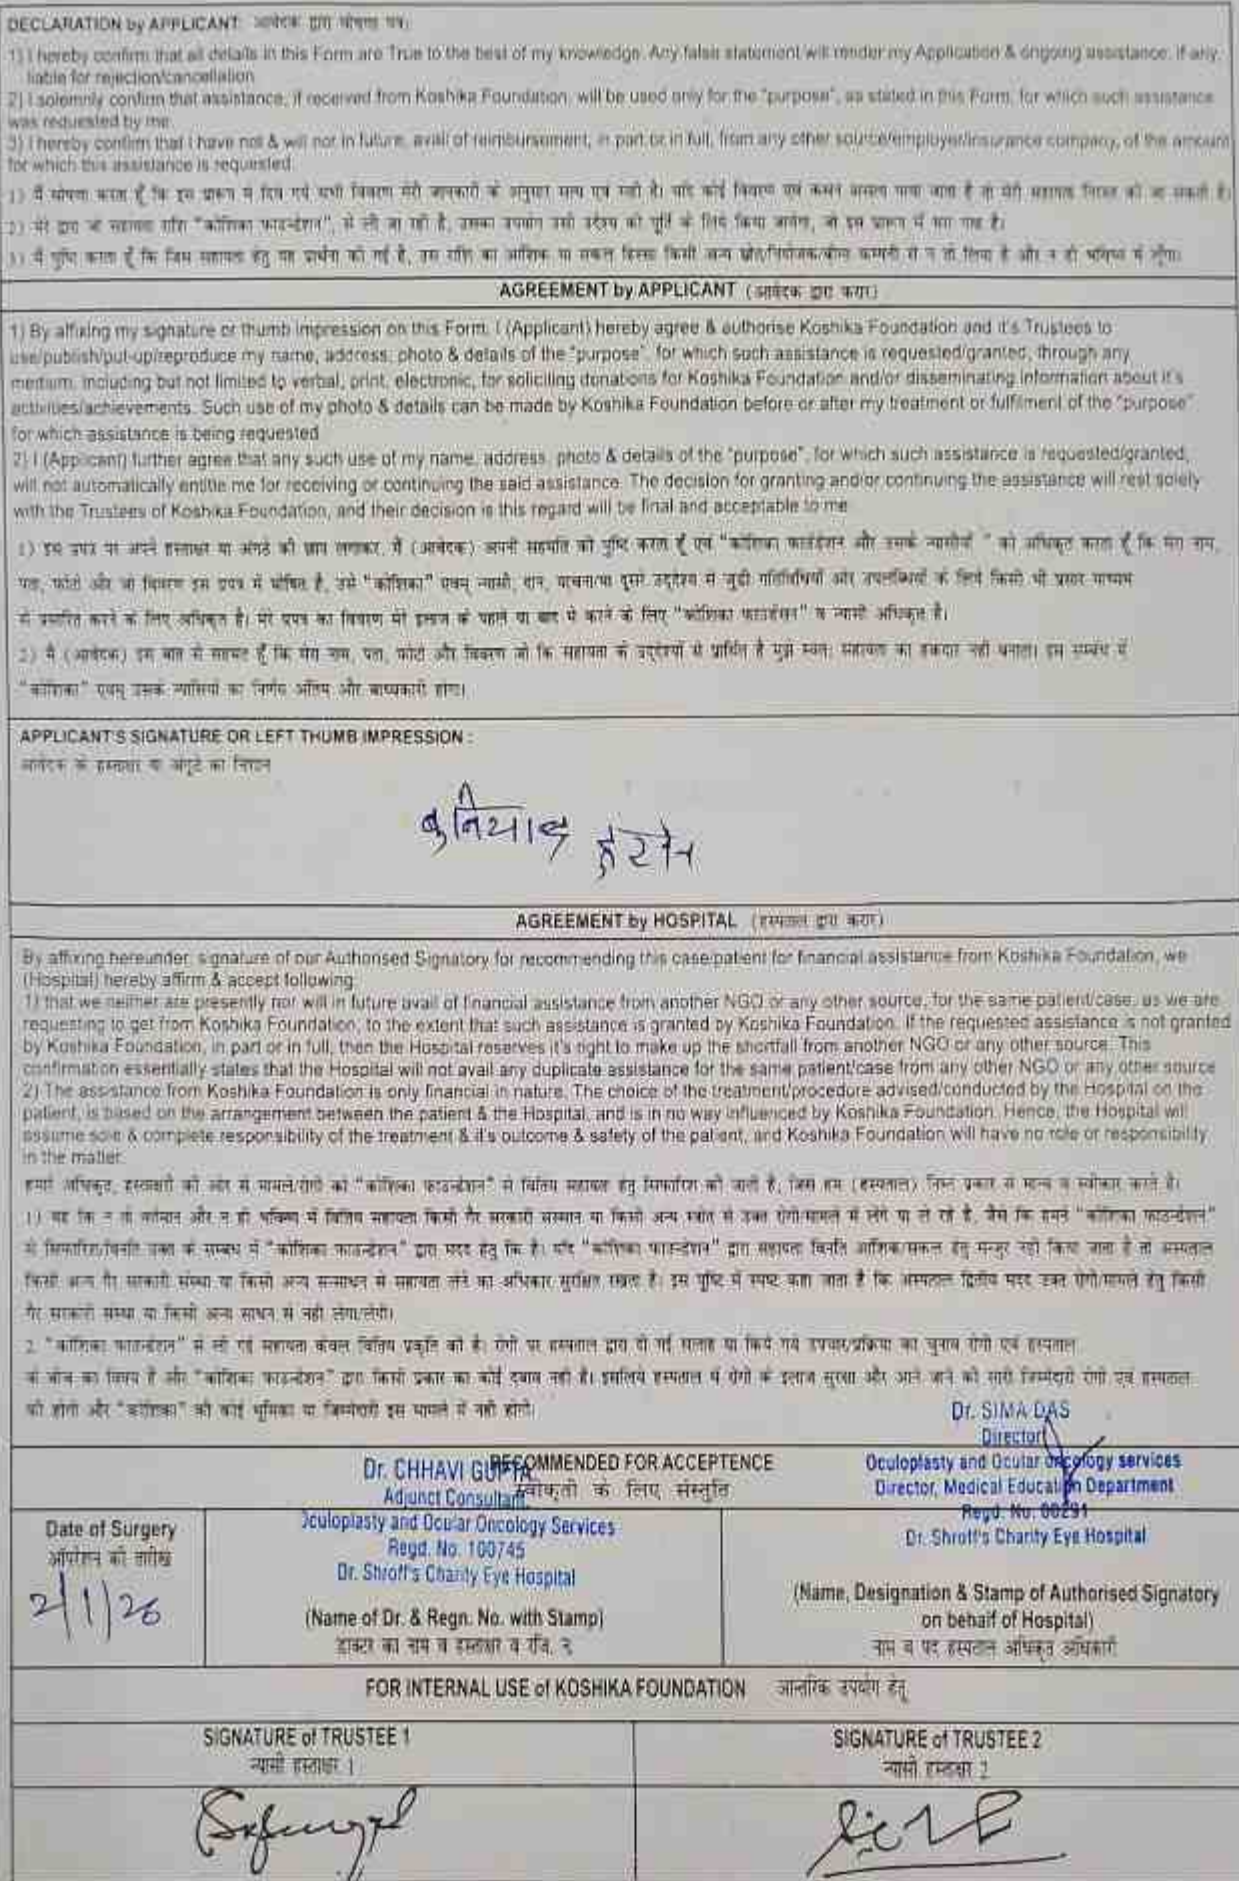 DECLARATION by APPLICANT: आवेदक द्वारा घोषणा पत्र:
1) I hereby confirm that all details in this Form are True to the best of my knowledge. Any false statement will render my Application & ongoing assistance, if any,
liable for rejection/cancellation.
2) I solemnly confirm that assistance, if received from Koshika Foundation, will be used only for the "purpose", as stated in this Form, for which such assistance
was requested by me.
3) I hereby confirm that I have not & will not in future, avail of reimbursement, in part or in full, from any other source/employer/insurance company, of the amount
for which this assistance is requested.
1) मैं घोषणा करता हूँ कि इस प्रारूप में दिये गये सभी विवरण मेरी जानकारी के अनुसार सत्य एवं सही है। यदि कोई विवरण एवं कथन असत्य पाया जाता है तो मेरी सहायता निरस्त की जा सकती है।
2) मेरे द्वारा जो सहायता राशि "कोशिका फाउन्डेशन", से ली जा रही है, उसका उपयोग उसी उद्देश्य की पूर्ति के लिये किया जायेगा, जो इस प्रारूप में भरा गया है।
3) मैं पुष्टि करता हूँ कि जिस सहायता हेतु यह प्रार्थना की गई है, उस राशि का आंशिक या सकल हिस्सा किसी अन्य स्रोत/नियोजक/बीमा कम्पनी से न तो लिया है और न ही भविष्य में लूँगा।
AGREEMENT by APPLICANT (आवेदक द्वारा करार)
1) By affixing my signature or thumb impression on this Form, I (Applicant) hereby agree & authorise Koshika Foundation and it's Trustees to
use/publish/put-up/reproduce my name, address, photo & details of the "purpose", for which such assistance is requested/granted, through any
medium, including but not limited to verbal, print, electronic, for soliciling donations for Koshika Foundation and/or disseminating information about it's
activities/achievements. Such use of my photo & details can be made by Koshika Foundation before or after my treatment or fulfilment of the "purpose"
for which assistance is being requested
2) I (Applicant) further agree that any such use of my name, address, photo & details of the "purpose", for which such assistance is requested/granted,
will not automatically entitle me for receiving or continuing the said assistance. The decision for granting and/or continuing the assistance will rest solely
with the Trustees of Koshika Foundation, and their decision is this regard will be final and acceptable to me
1) इस प्रपत्र पर अपने हस्ताक्षर या अंगूठे की छाप लगाकर, मैं (आवेदक) अपनी सहमति की पुष्टि करता हूँ एवं "कोशिका फाउंडेशन और उसके न्यासीयों " को अधिकृत करता हूँ कि मेरा नाम,
पता, फोटो और जो विवरण इस प्रपत्र में घोषित है, उसे "कोशिका" एवम् न्यासी, दान, याचना/या दुसरे उद्देश्य से जुड़ी गतिविधियों और उपलब्धियों के लिये किसी भी प्रसार माध्यम
से प्रसारित करने के लिए अधिकृत है। मेरे प्रपत्र का विवरण मेरे इलाज के पहले या बाद में करने के लिए "कोशिका फाउंडेशन" व न्यासी अधिकृत है।
2) मैं (आवेदक) इस बात से सहमत हूँ कि मेरा नाम, पता, फोटो और विवरण जो कि सहायता के उद्देश्यों से प्रार्थित है मुझे स्वतः सहायता का हकदार नहीं बनाता। इस सम्बंध में
"कोशिका" एवम् उसके न्यासियों का निर्णय अंतिम और बाध्यकारी होगा।
APPLICANT'S SIGNATURE OR LEFT THUMB IMPRESSION :
आवेदक के हस्ताक्षर या अंगूटे का निशान
बुनियाद हुसैन
AGREEMENT by HOSPITAL (हस्पताल द्वारा करार)
By affixing hereunder, signature of our Authorised Signatory for recommending this case/patient for financial assistance from Koshika Foundation, we
(Hospital) hereby affirm & accept following:
1) that we neither are presently nor will in future avail of financial assistance from another NGO or any other source, for the same patient/case, as we are
requesting to get from Koshika Foundation, to the extent that such assistance is granted by Koshika Foundation. If the requested assistance is not granted
by Koshika Foundation, in part or in full, then the Hospital reserves it's right to make up the shortfall from another NGO or any other source. This
confirmation essentially states that the Hospital will not avail any duplicate assistance for the same patient/case from any other NGO or any other source
2) The assistance from Koshika Foundation is only financial in nature. The choice of the treatment/procedure advised/conducted by the Hospital on the
patient, is based on the arrangement between the patient & the Hospital, and is in no way influenced by Koshika Foundation. Hence, the Hospital will
assume sole & complete responsibility of the treatment & it's outcome & safety of the patient, and Koshika Foundation will have no role or responsibility
in the matter.
हमारे अधिकृत, हस्ताक्षरी की ओर से मामले/रोगी को "कोशिका फाउन्डेशन" से वित्तिय सहायता हेतु सिफारिश की जाती है, जिसे हम (हस्पताल) निम्न प्रकार से मान्य व स्वीकार करते है।
1) यह कि न तो वर्तमान और न ही भविष्य में वित्तिय सहायता किसी गैर सरकारी संस्थान या किसी अन्य स्त्रोत से उक्त रोगी/मामले में लेंगे या ले रहे है, जैसे कि हमने "कोशिका फाउन्डेशन"
से सिफारिश/विनति उक्त के सम्बंध में "कोशिका फाउन्डेशन" द्वारा मदद हेतु कि है। यदि "कोशिका फाउन्डेशन" द्वारा सहायता विनति आंशिक/सकल हेतु मन्जुर नही किया जाता है तो अस्पताल
किसी अन्य गैर सरकारी संस्था या किसी अन्य सन्साधन से सहायता लेने का अधिकार सुरक्षित रखता है। इस पुष्टि में स्पष्ट कहा जाता है कि अस्पताल द्वितीय मदद उक्त रोगी/मामले हेतु किसी
गैर सरकारी संस्था या किसी अन्य साधन से नही लेगा/लेगी।
2. "कोशिका फाउन्डेशन" से ली गई सहायता केवल वित्तिय प्रकृति की है। रोगी पर हस्पताल द्वारा दी गई सलाह या किये गये उपचार/प्रक्रिया का चुनाव रोगी एवं हस्पताल
के बीच का विषय है और "कोशिका फाउन्डेशन" द्वारा किसी प्रकार का कोई दबाव नही है। इसलिये हस्पताल में रोगी के इलाज सुरक्षा और आने जाने की सारी जिम्मेदारी रोगी एवं हस्पताल
की होगी और "कोशिका" की कोई भूमिका या जिम्मेदारी इस मामले में नही होगी।
Dr. SIMA DAS
Director
Oculoplasty and Ocular Oncology services
Director, Medical Education Department
Regd. No. 00291
Dr. Shroff's Charity Eye Hospital
RECOMMENDED FOR ACCEPTANCE
स्वीकृती के लिए संस्तुति
Dr. CHHAVI GUPTA
Adjunct Consultant
Oculoplasty and Ocular Oncology Services
Regd. No. 100745
Dr. Shroff's Charity Eye Hospital
Date of Surgery
ऑपरेशन की तारीख
2/1/26
(Name of Dr. & Regn. No. with Stamp)
डाक्टर का नाम व हस्ताक्षर व रजि. न.
(Name, Designation & Stamp of Authorised Signatory
on behalf of Hospital)
नाम व पद हस्पताल अधिकृत अधिकारी
FOR INTERNAL USE of KOSHIKA FOUNDATION आन्तरिक उपयोग हेतु
SIGNATURE of TRUSTEE 1
न्यासी हस्ताक्षर 1
SIGNATURE of TRUSTEE 2
न्यासी हस्ताक्षर 2